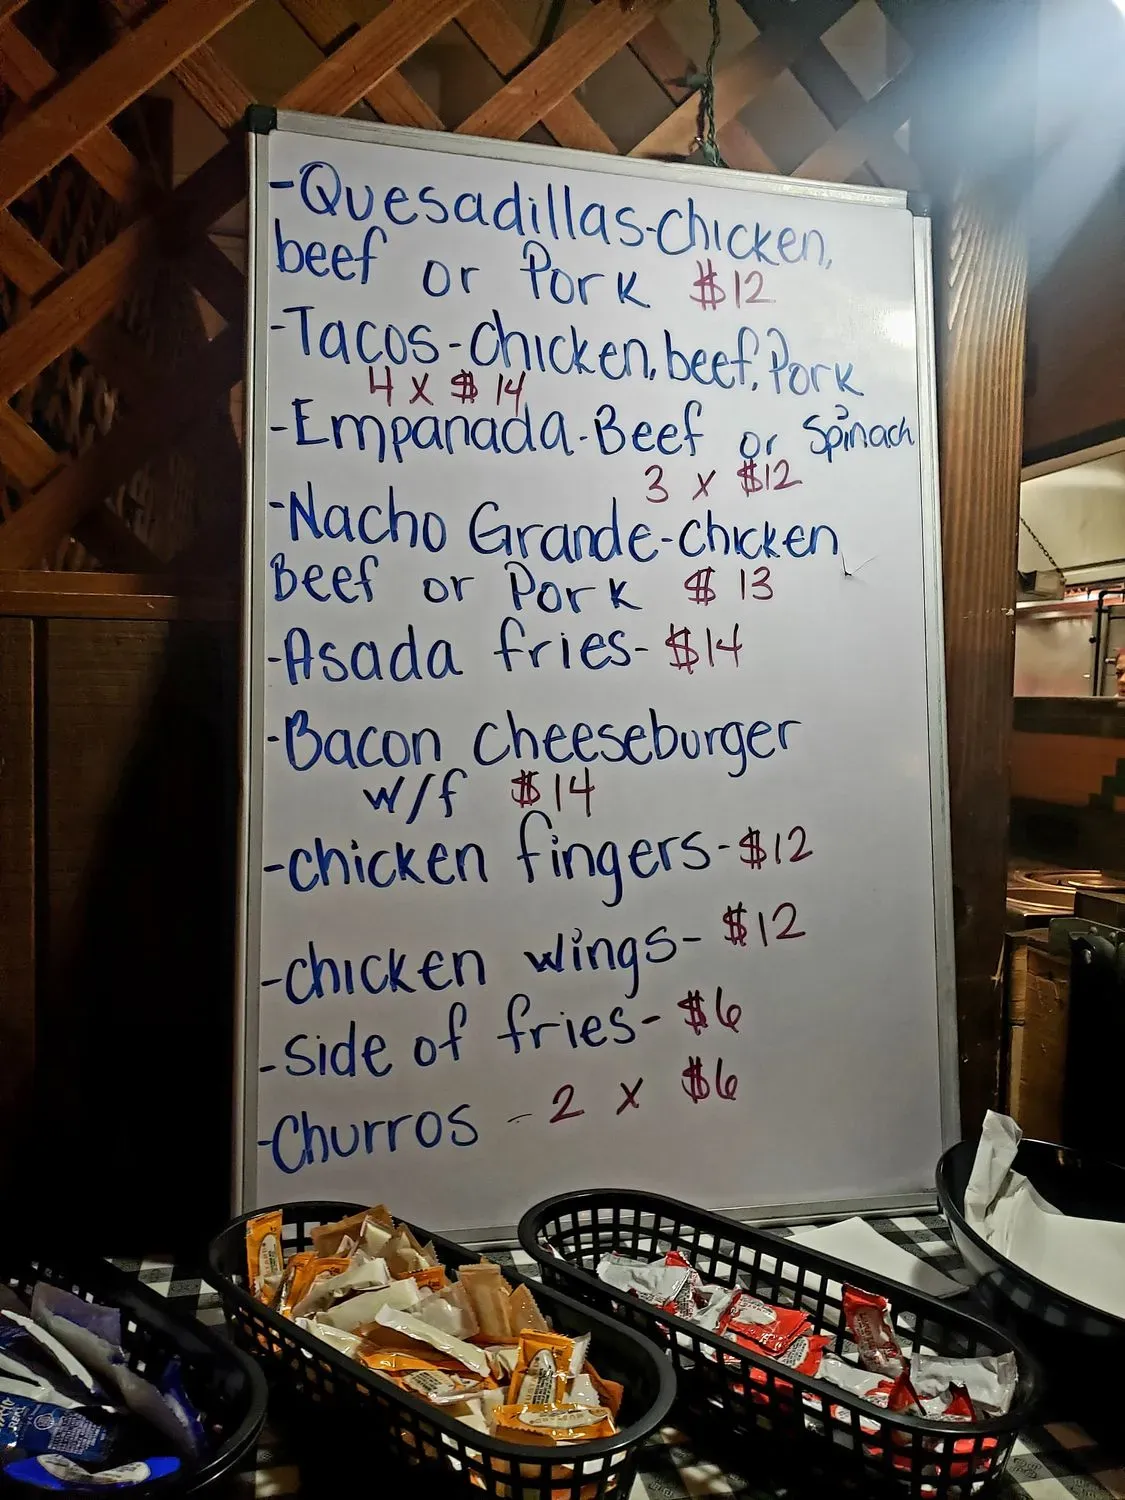 -Quesadillas-chicken,
beef or Pork $12
-Tacos-chicken, beef, Pork
4 x $14
-Empanada-Beef or Spinach
3 x $12
-Nacho Grande-chicken
Beef or Pork $13
-Asada fries-$14
-Bacon cheeseburger
w/f $14
-chicken fingers-$12
-chicken wings-$12
-side of fries-$6
-Churros - 2 x $6